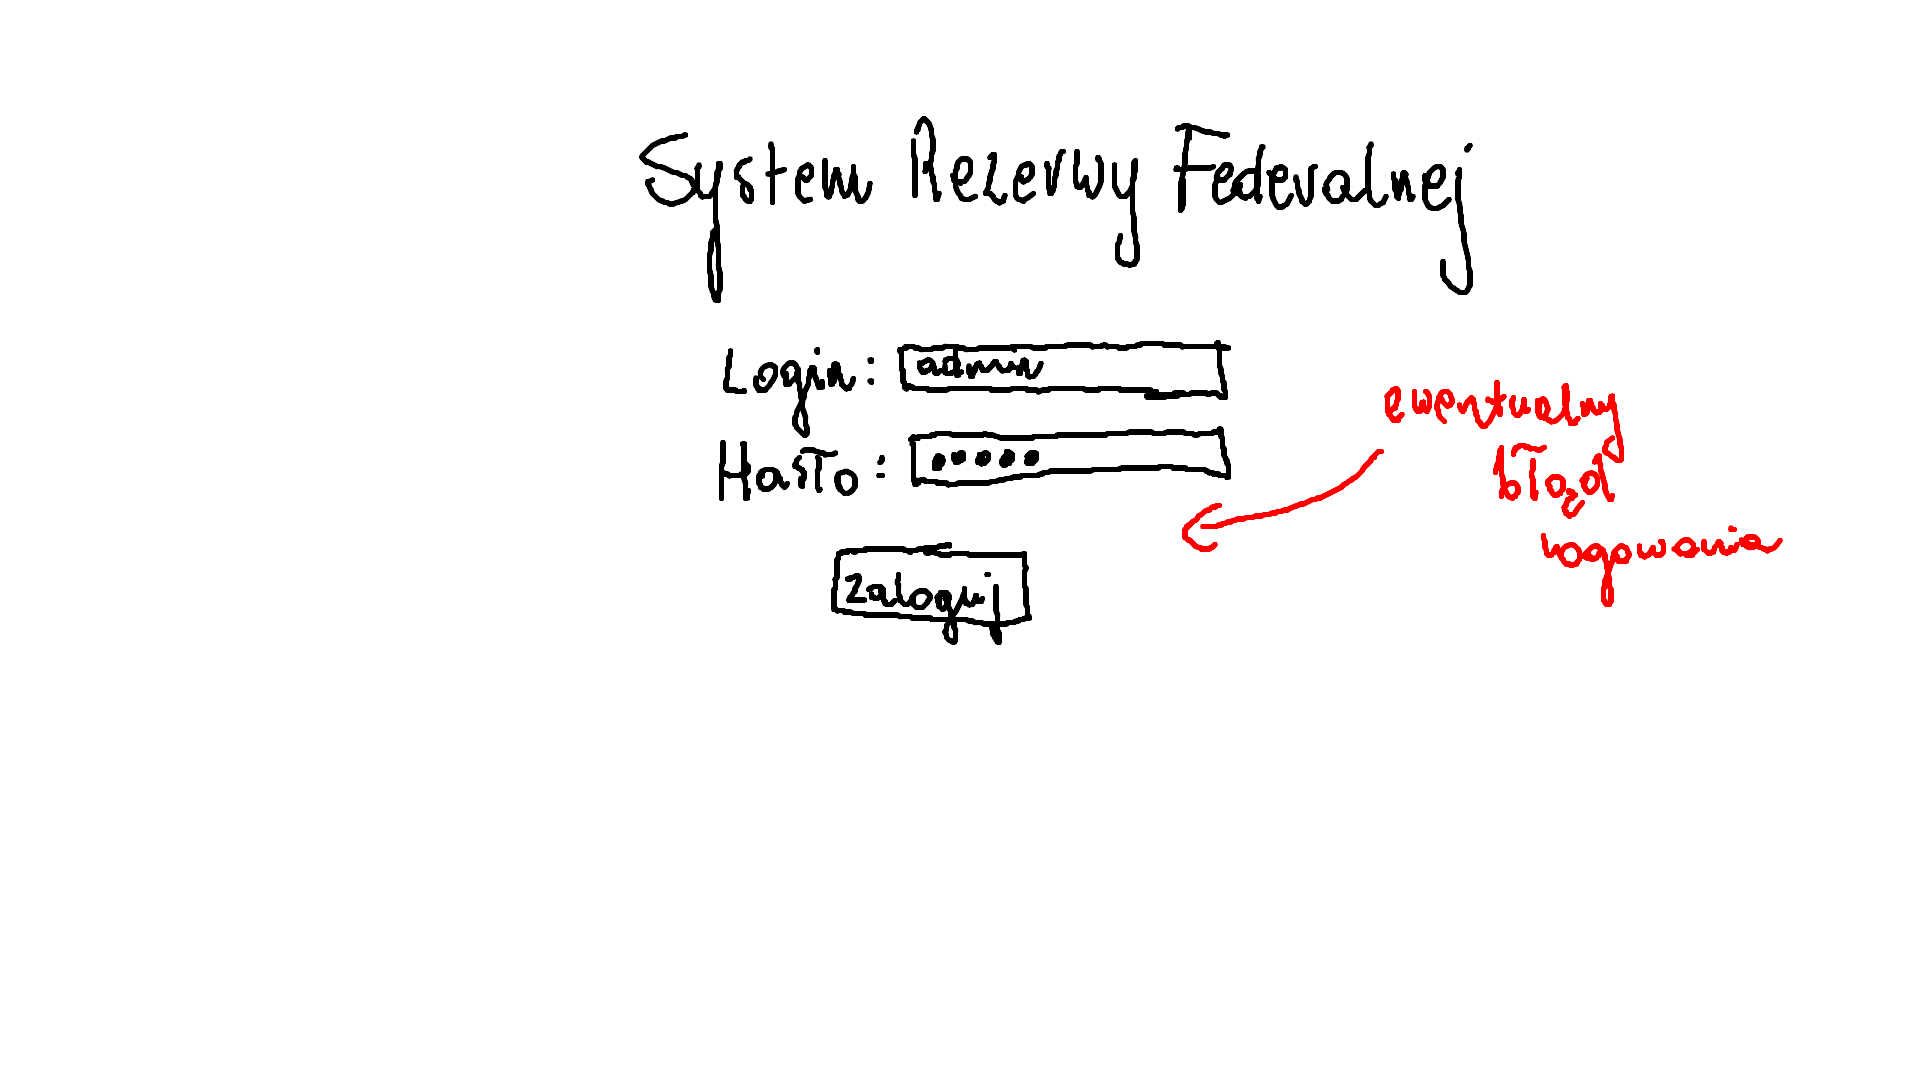 System Rezerwy Federalnej
Login: admin
Hasło: •••••
zaloguj
ewentualny
błąd
logowania